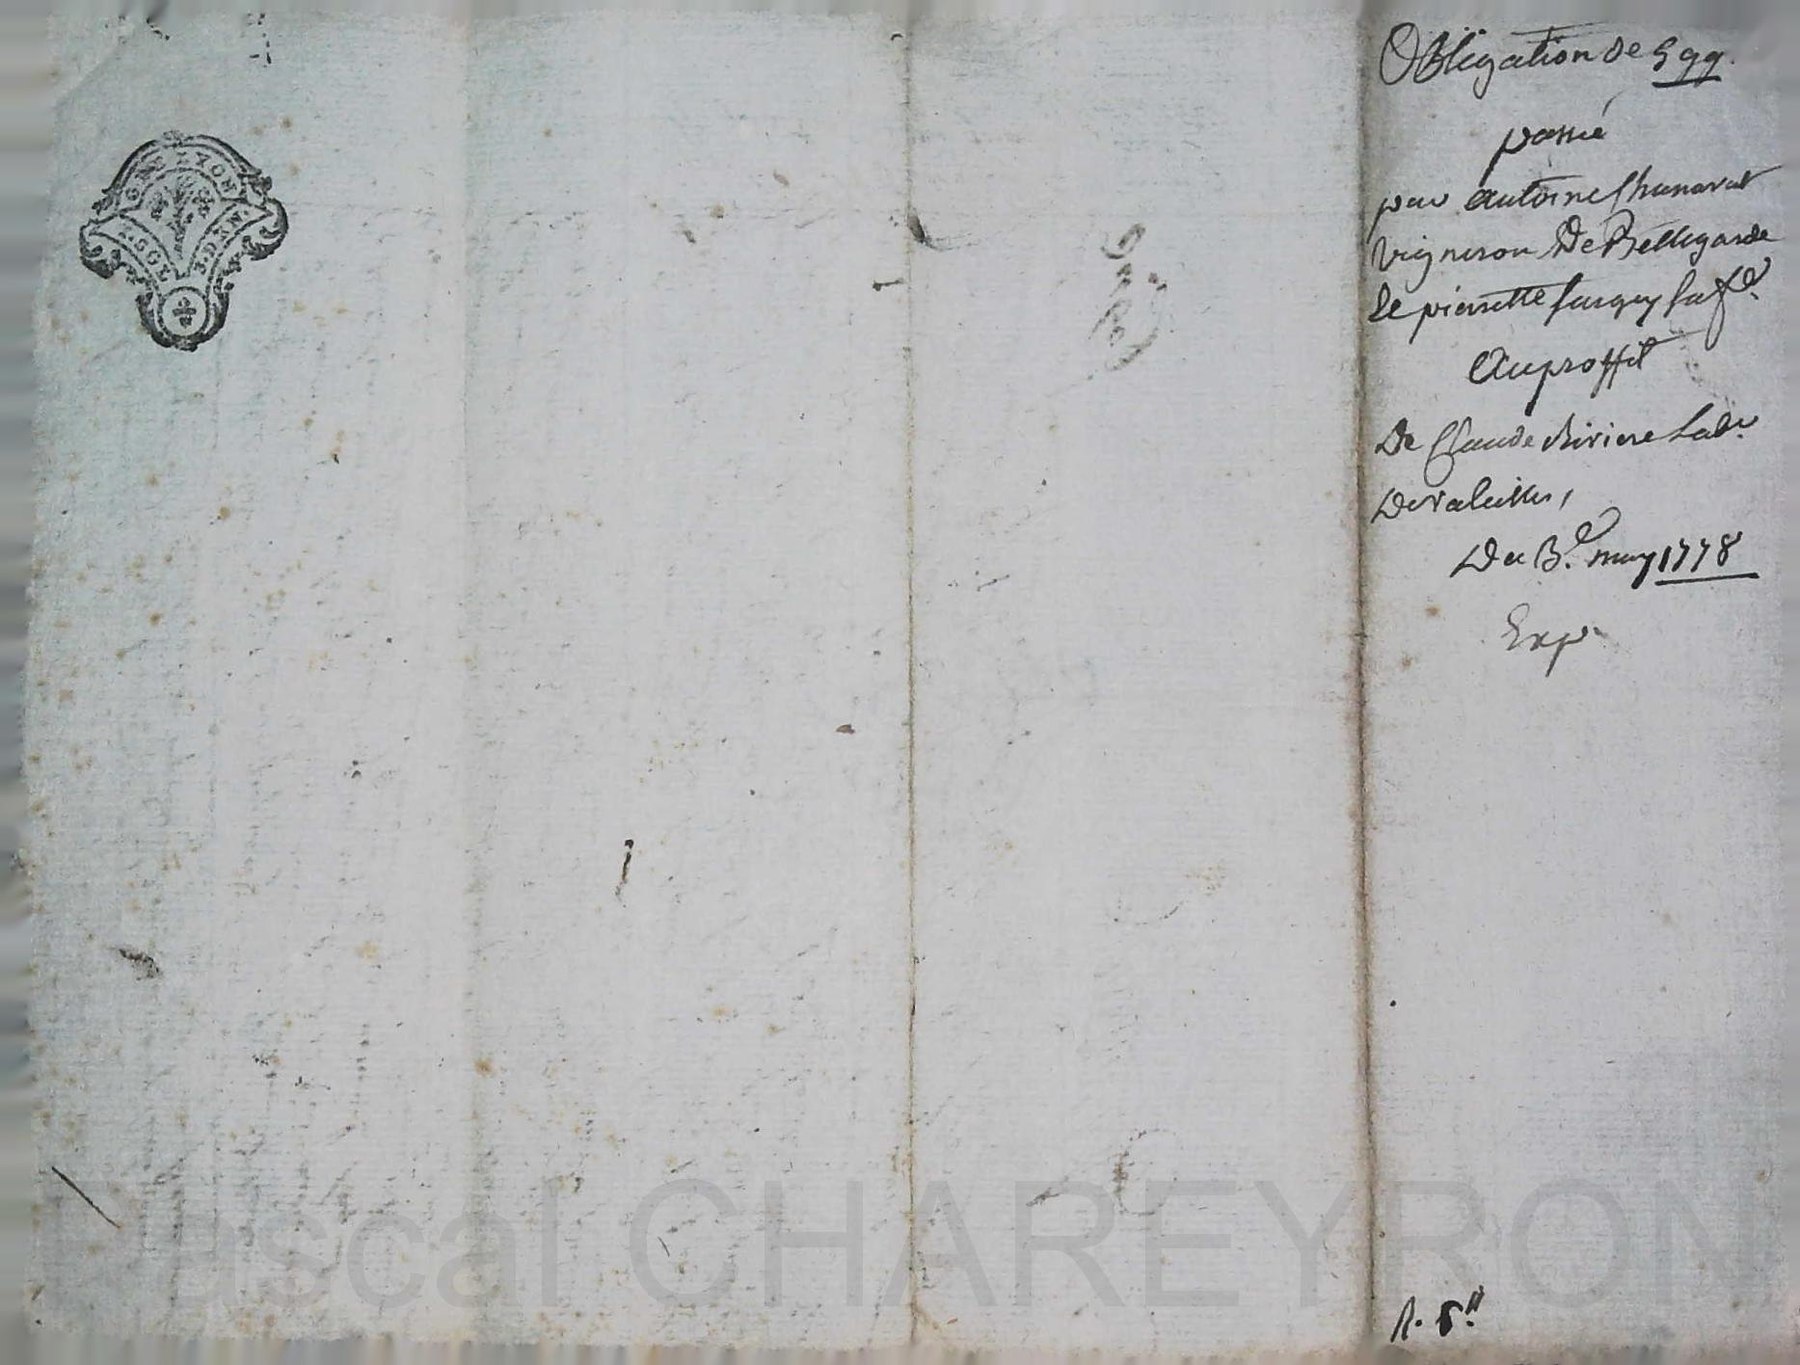 GEN LYON
2. SOL
8. DEN.
Obligation de 599.
passé
par antoine Chanavat
vigneron De Bellegarde
et pierrette furgey sa fe.
Au proffit
De Claude Riviere Labr.
De valeille,
Du 3e. may 1778
Exp.
R. 6ll
Pascal CHAREYRON